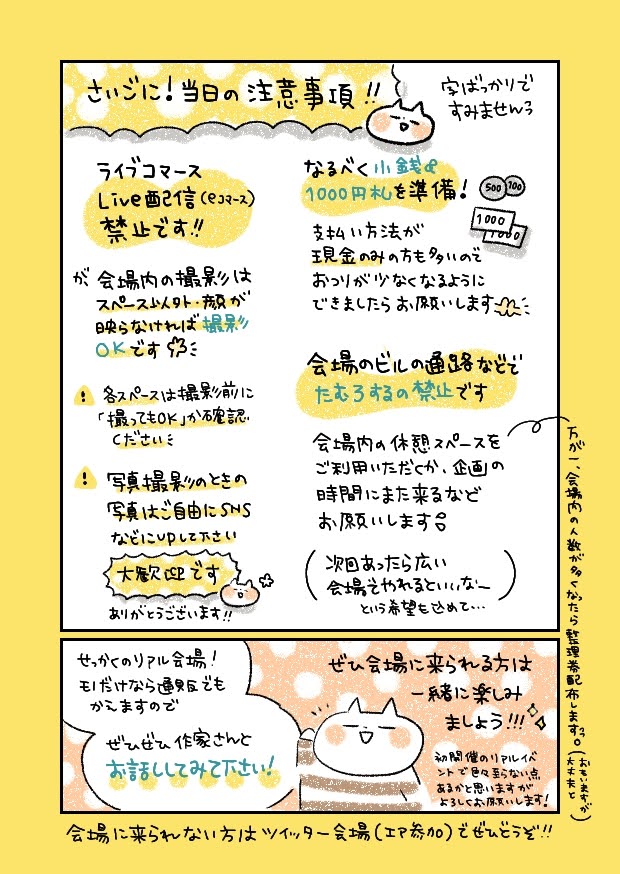 さいごに！当日の注意事項!!
字ばっかりで
すみません
ライブコマース
Live配信(eコマース)
禁止です!!
が 会場内の撮影は
スペース以外・顔が
映らなければ撮影
OKです
! 各スペースは撮影前に
「撮ってもOK」か確認
ください
! 写真撮影のときの
写真はご自由にSNS
などにupして下さい
大歓迎です
ありがとうございます!!
なるべく小銭&
1000円札を準備!
500 100
1000
1000
支払い方法が
現金のみの方も多いので
おつりが少なくなるように
できましたらお願いします
会場のビルの通路などで
たむろするの禁止です
会場内の休憩スペースを
ご利用いただくとか、企画の
時間にまた来るなど
お願いします
(次回あったら広い
会場でやれるといいなー
という希望も込めて…)
万が一、会場内の人数が多くなったら整理券配布します。(大丈夫と
おもいますが)
せっかくのリアル会場!
モノだけなら通販でも
かえますので
ぜひぜひ作家さんと
お話ししてみて下さい!
ぜひ会場に来られる方は
一緒に楽しみ
ましょう!!!
初開催のリアルイベ
ントで色々至らない点
あるかと思いますが
よろしくお願いします!
会場に来られない方はツイッター会場(エア参加)でぜひどうぞ!!